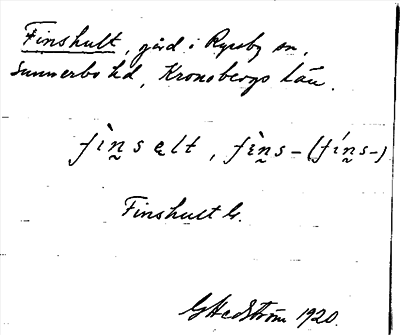 Finshult, gård i Ryssby sn,
Sunnerbo hd, Kronobergs län.
fìn̰sęlt, fìn̰s- (fín̰s-)
Finshult G.
GHedström 1920.